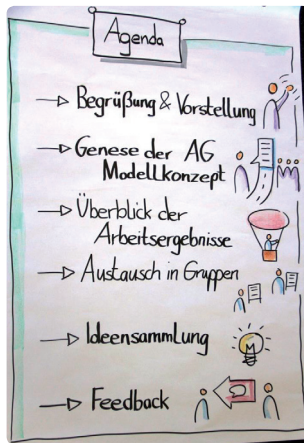 Agenda
→ Begrüßung & Vorstellung
→ Genese der AG
Modellkonzept
→ Überblick der
Arbeitsergebnisse
→ Austausch in Gruppen
→ Ideensammlung
→ Feedback